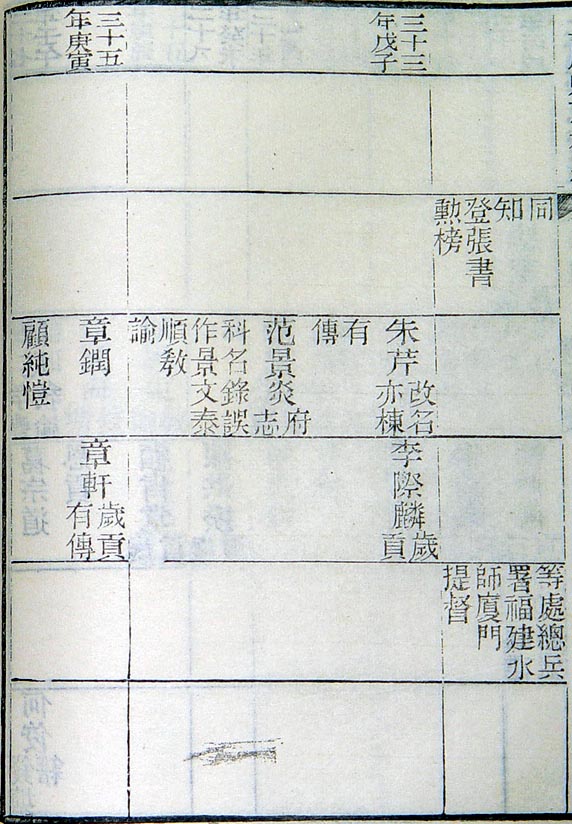 同
知
登張書
勲榜
等處總兵
署福建水
師廈門
提督
三十三
年戊子
朱芹
改名
亦棟
有
傳
范景炎
府
志
科名錄誤
作景文泰
順教
諭
李際麟
歲
貢
三十五
年庚寅
章
章軒
歲貢
有傳
顧純愷